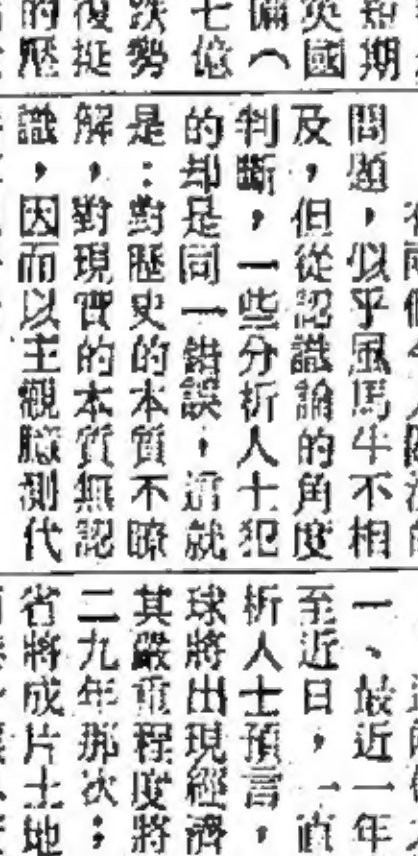 短期
英國
備（
七億
跌勢
復挺
的壓
問題，似乎風馬牛不相
及，但從認識論的角度
判斷，一些分析人士犯
的却是同一錯誤，這就
是：對歷史的本質不瞭
解，對現實的本質無認
識，因而以主觀臆測代
一、最近一年
至近日，一直
析人士預言，
球將出現經濟
其嚴重程度將
二九年那次；
省將成片土地